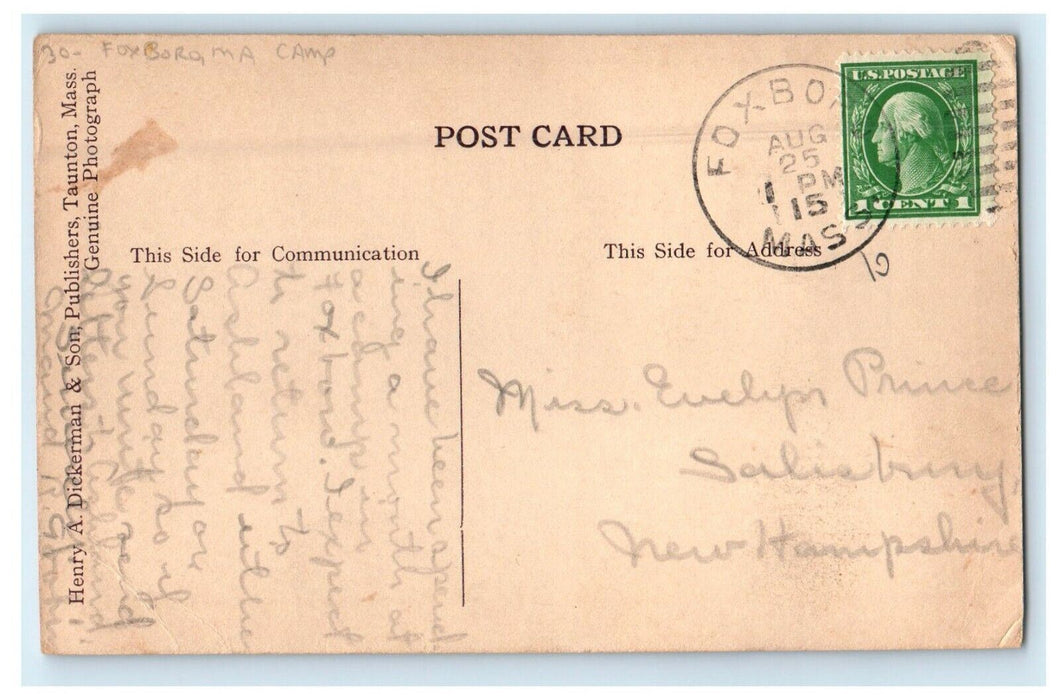 30- FOXBORO, MA CAMP
Henry A. Dickerman & Son, Publishers, Taunton, Mass.
Genuine Photograph
POST CARD
FOXBORO
AUG
25
1 PM
15
MASS.
U.S. POSTAGE
1 CENT 1
This Side for Communication
This Side for Address
I have been spend-
ing a month at
a camp in
Foxboro. I expect
to return to
Ashland either
Saturday or
Sunday so if
you write send
to Ashland.
Miss. Evelyn Prince
Salisbury,
New Hampshire